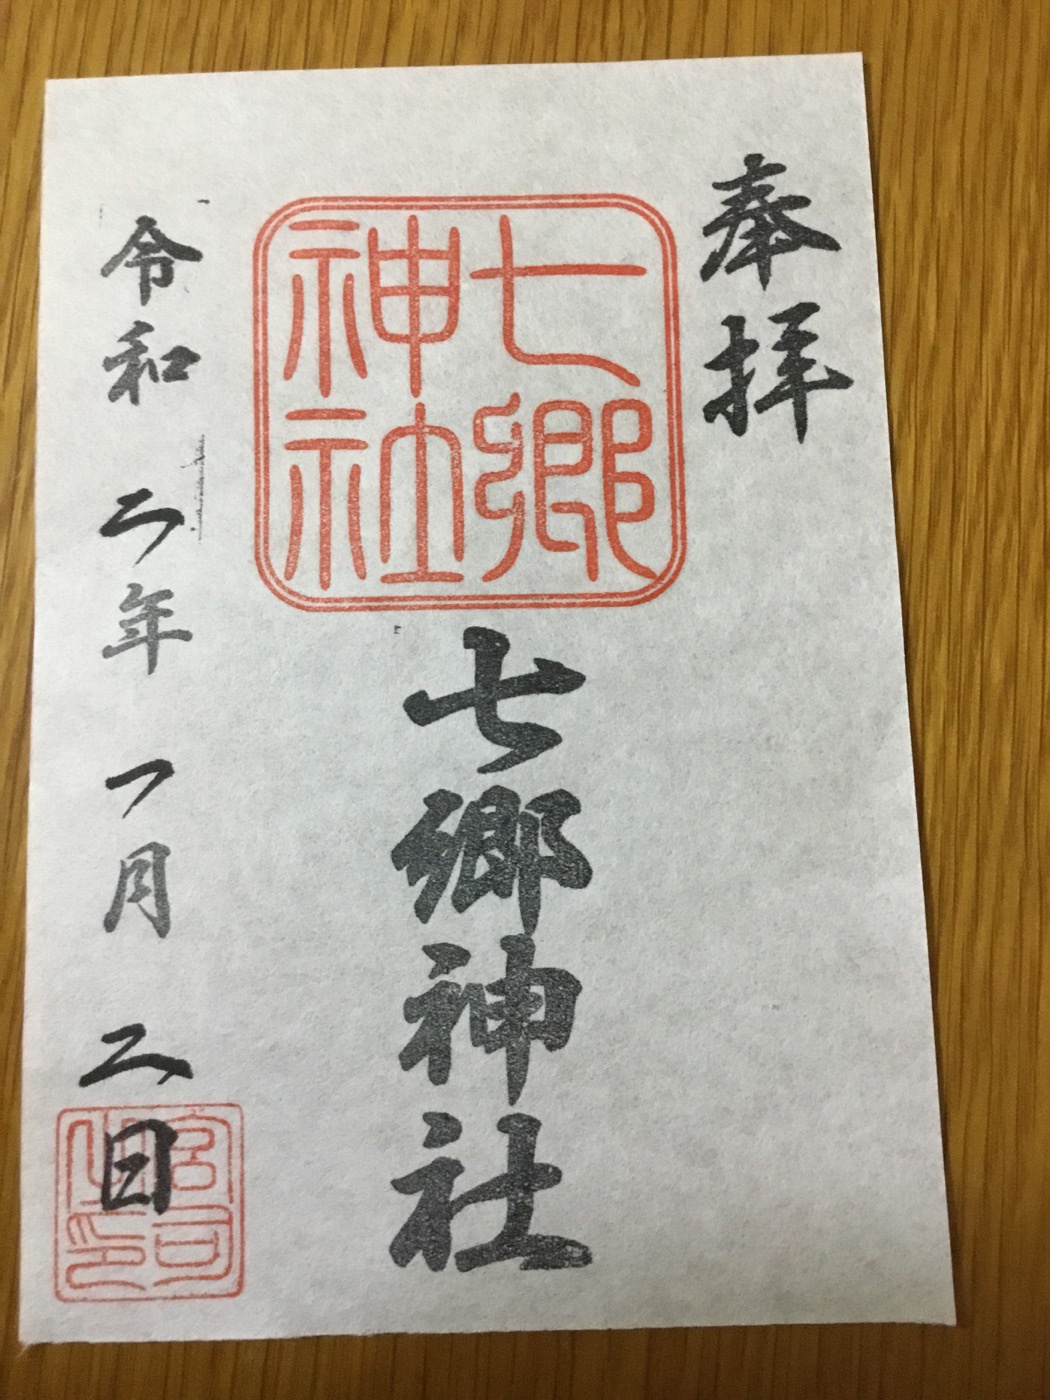 奉拝
七郷
神社
七郷神社
令和二年一月二日
宮司
之印